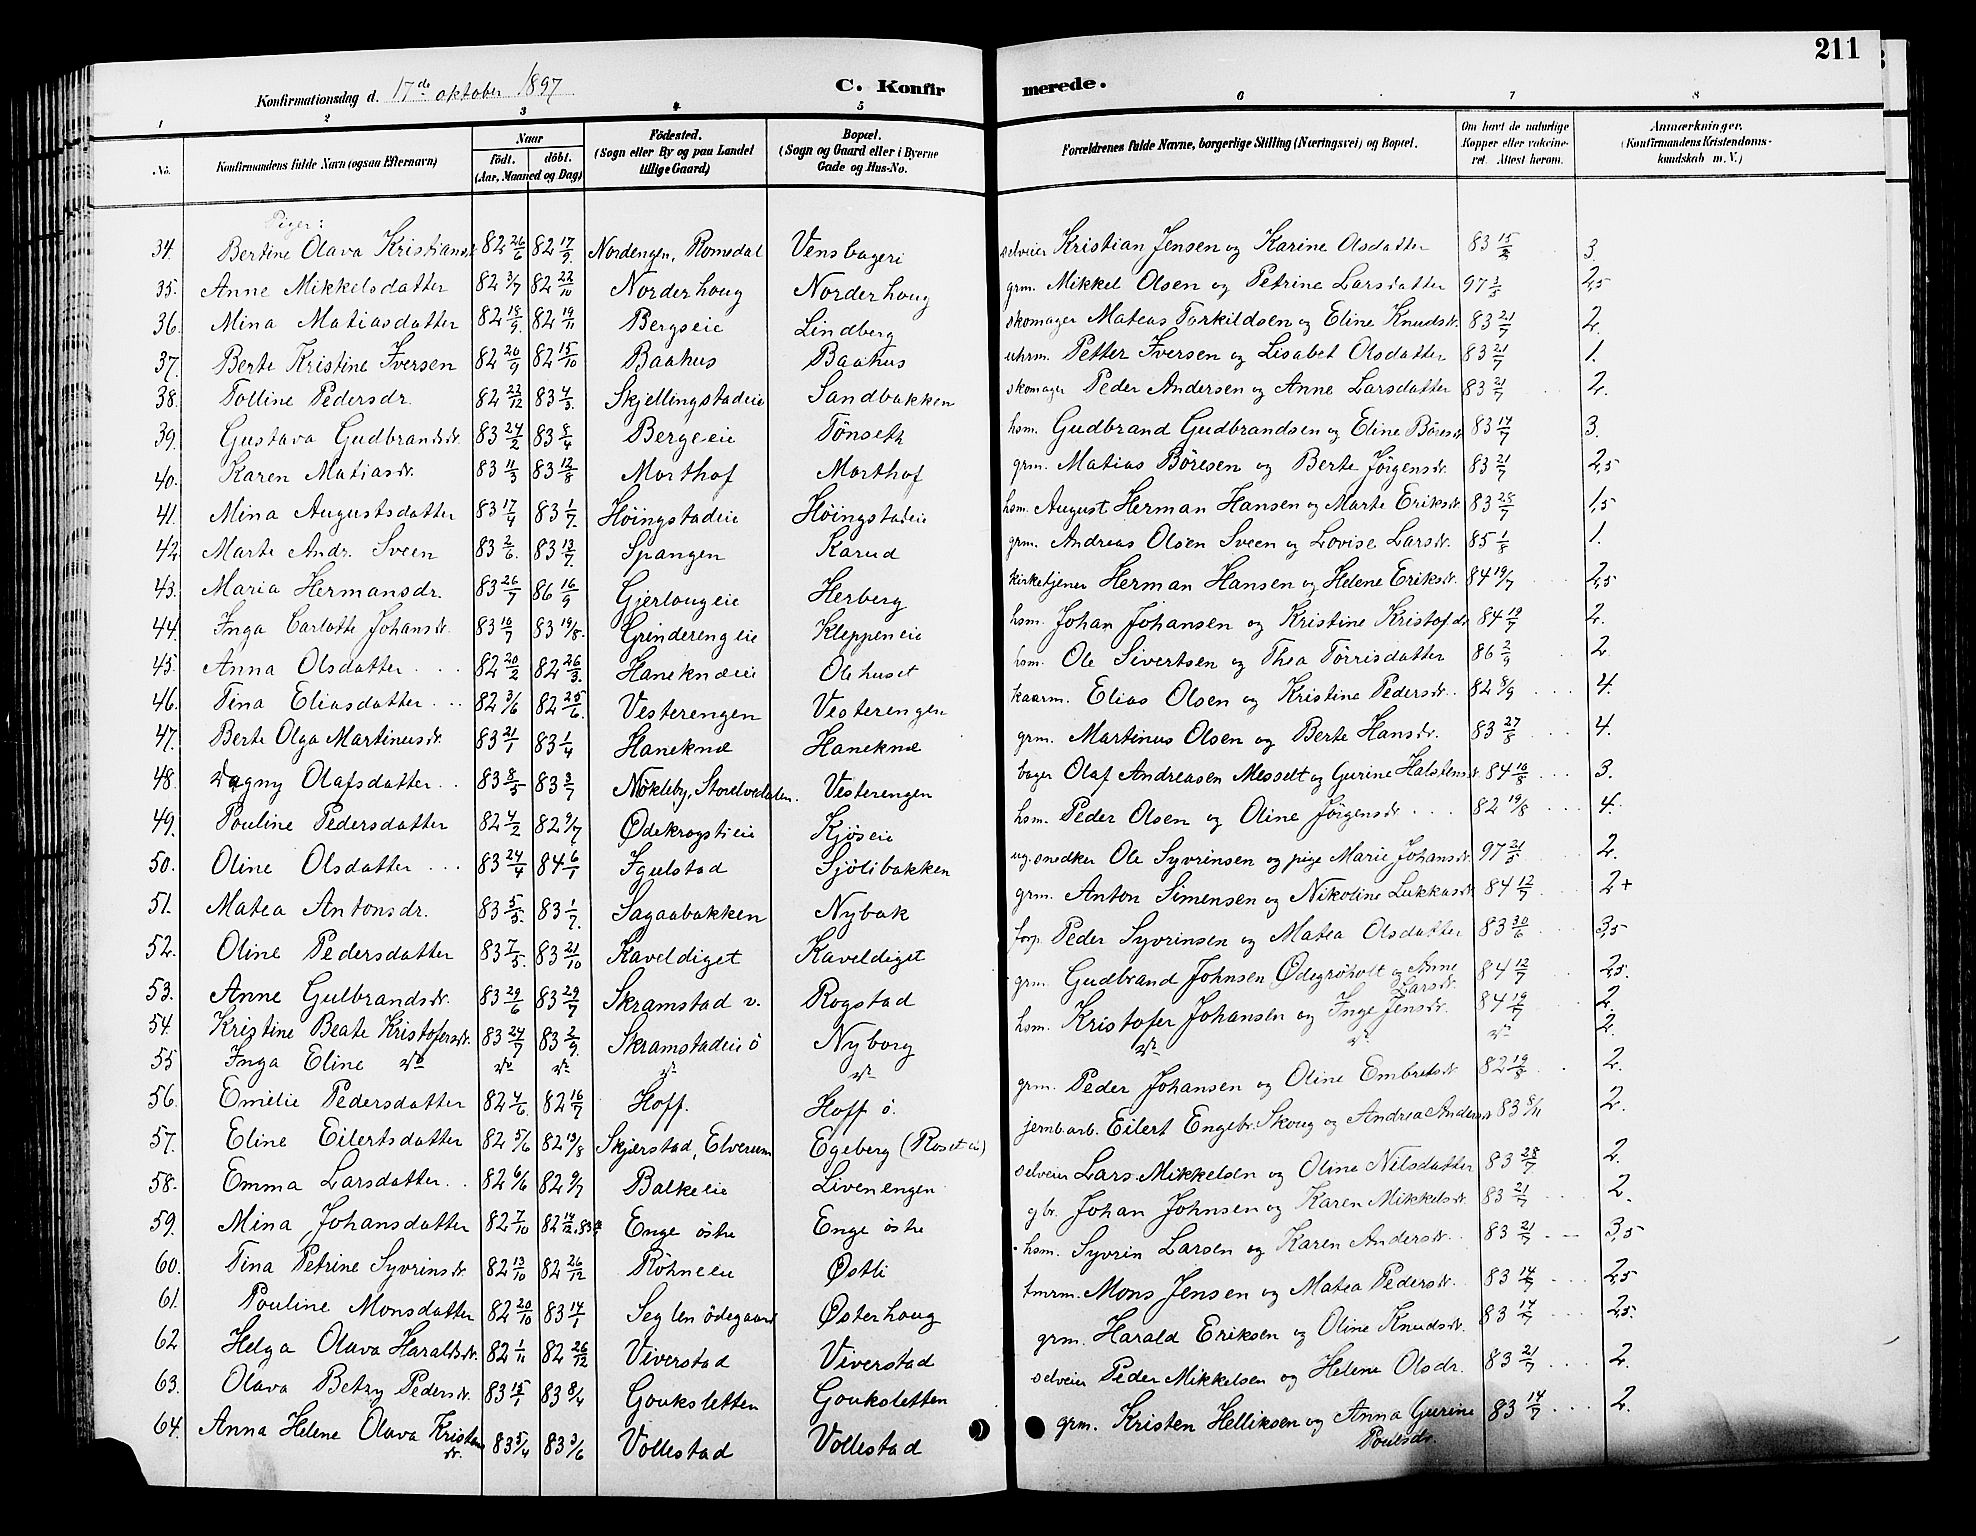 211
Konfirmationsdag d. 17de oktober 1897
C. Konfirmerede.
1 2 3 4 5 6 7 8
No. | Konfirmandens fulde Navn (ogsaa Efternavn) | Naar födt. döbt. (Aar, Maaned og Dag) | Födested. (Sogn eller By og paa Landet tillige Gaard) | Bopæl. (Sogn og Gaard eller i Byerne Gade og Hus-No. | Forældrenes fulde Navne, borgerlige Stilling (Næringsvei) og Bopæl. | Om havt de naturlige Kopper eller vakcineret. Attest herom. | Anmærkninger. (Konfirmandens Kristendomskundskab m. V.)
Piger:
34. Bertine Olava Kristiansdr. 82 26/6 82 17/9. Nordengen, Romedal Vensbageri selveier Kristian Jensen og Karine Olsdatter 83 15/2 3.
35. Anne Mikkelsdatter 82 3/7 82 22/10 Norderhoug Norderhoug grm. Mikkel Olsen og Petrine Larsdatter 97 3/5 2,5
36. Mina Matiasdatter 82 18/9. 82 19/11 Bergseie Lindberg skomager Mateas Torkildsen og Eline Knudsdr. 83 21/7 2.
37. Berte Kristine Iversen 82 20/9 82 15/10 Baahus Baahus uhrm. Petter Iversen og Lisabet Olsdatter 83 21/7 1.
38. Tolline Pedersdr. 82 22/12 83 4/3. Skjellingstadeie Sandbakken skomager Peder Andersen og Anne Larsdatter 83 21/7 2.
39. Gustava Gudbrandsdr. 83 24/2 83 8/4 Bergseie Tönseth hsm. Gudbrand Gudbrandsen og Eline Böresdr. 83 14/7 3.
40. Karen Matiasdr. 83 11/3 83 12/8 Morthof Morthof grm. Matias Böresen og Berte Jörgensdr. 83 21/7 2,5
41. Mina Augustsdatter 83 17/4 83 1/7. Höingstadeie Höingstadeie hsm. August Herman Hansen og Marte Eriksdr. 83 28/7 1,5
42. Marte Andr. Sveen 83 2/6. 83 13/7. Spangen Karud grm. Andreas Olsen Sveen og Lovise Larsdr. 85 1/8 1.
43. Maria Hermansdr. 83 26/7 86 16/9 Gjerlougeie Herberg kirketjener Herman Hansen og Helene Eriksdr. 84 19/7 2,5
44. Inga Carlotte Johansdr. 83 10/7 83 19/8. Grinderengeie Kleppeneie hsm. Johan Johansen og Kristine Kristofdr. 84 19/7 2.
45. Anna Olsdatter 82 20/2 82 26/3. Hanekneeie Olehuset hsm. Ole Sivertsen og Thea Törrisdatter 86 2/9 2.
46. Tina Eliasdatter 82 3/6 82 25/6. Vesterengen Vesterengen kaarm. Elias Olsen og Kristine Pedersdr. 82 8/9 4.
47. Berte Olga Martinusdr. 83 21/1 83 1/4 Haneknæ Haneknæ grm. Martinus Olsen og Berte Hansdr. 83 27/8 4.
48. Dagny Olafsdatter 83 8/5 83 3/7 Nökleby, Storelvedalen. Vesterengen bager Olaf Andreasen Messelt og Gurine Halstensdr. 84 10/8 3.
49. Pouline Pedersdatter 82 4/2 82 9/7 Ødekrogstieie Kjöseie hsm. Peder Olsen og Oline Jörgensdr. 82 19/8 4.
50. Oline Olsdatter 83 24/4 84 6/1 Igulstad Sjölibakken ug. snedker Ole Syvrinsen og pige Marie Johansdr. 97 21/5 2.
51. Matea Antonsdr. 83 5/5. 83 1/7. Sagaabakken Nybak grm. Anton Simensen og Nikoline Lukkasdr. 84 12/7 2+
52. Oline Pedersdatter 83 7/5. 83 21/10 Kaveldiget Kaveldiget forp. Peder Syvrinsen og Matea Olsdatter 83 30/6 3,5
53. Anne Gulbrandsdr. 83 29/6 83 29/7 Skramstad v. Rogstad grm. Gudbrand Johnsen Ødegröholt og Anne Larsdr. 84 12/7 2,5.
54. Kristine Beate Kristofersdr. 83 24/7 83 2/9. Skramstadeie ö Nyborg hsm. Kristofer Johansen og Inge Jensdr. 84 19/7 2.
55 Inga Eline do do do do do do do do 2.
56. Emelie Pedersdatter 82 4/6. 82 16/7 Hoff. Hoff ö. grm. Peder Johansen og Oline Embretsdr. 82 19/8 2.
57. Eline Eilertsdatter 82 5/6 82 13/8 Skjærstad, Elverum Egeberg (Roset ei) jernb arb. Eilert Engebr. Skoug og Andrea Andersdr. 83 8/11 2.
58. Emma Larsdatter 82 6/6 82 9/7 Balkeeie Livenengen selveier Lars Mikkelsen og Oline Nilsdatter 83 28/7 2.
59. Mina Johansdatter 82 7/10 82 14/12. 83 Enge östre Enge östre gbr. Johan Johnsen og Karen Mikkelsdr. 83 21/7 2.
60. Tina Petrine Syvrinsdr. 82 13/10 82 26/12 Röhneeie Østli hsm. Syvrin Larsen og Karen Andersdr. 83 21/7 3,5
61. Pouline Monsdatter 82 20/10 83 14/1 Seglenödegaard Østerhoug tmrm. Mons Jensen og Matea Pedersdr. 83 14/7 2,5
62 Helga Olava Haraldsdr. 82 1/11 82 26/12 Viverstad Viverstad grm. Harald Eriksen og Oline Knudsdr. 83 14/7 2,5.
63. Olava Betzy Pedersdr. 83 15/1 83 8/4 Gouksletten Gouksletten selveier Peder Mikkelsen og Helene Olsdr. 83 21/7 2.
64. Anna Helene Olava Kristensdr. 83 5/4 83 3/6 Vollestad Vollestad grm. Kristen Helliksen og Anna Gurine Poulsdr. 83 14/7 2.